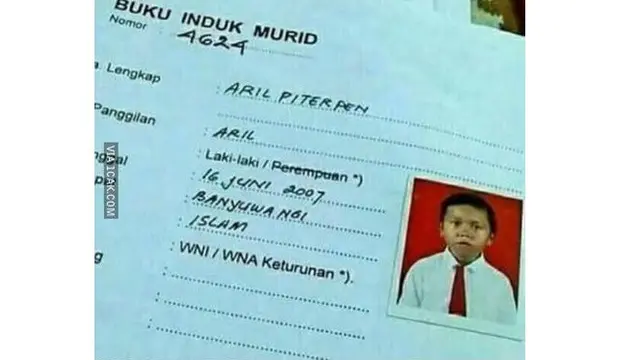 BUKU INDUK MURID
Nomor : 4624
Lengkap : ARIL PITERPEN
Panggilan : ARIL
: Laki-laki / Perempuan *)
: 16 JUNI 2007
BANYUWANGI
: ISLAM
: WNI / WNA Keturunan *).
VIA1CAK.COM